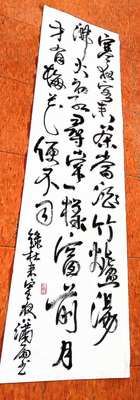 寒夜客來茶當酒竹爐湯
沸火初紅尋常一樣窗前月
才有梅花便不同
錄杜耒寒夜